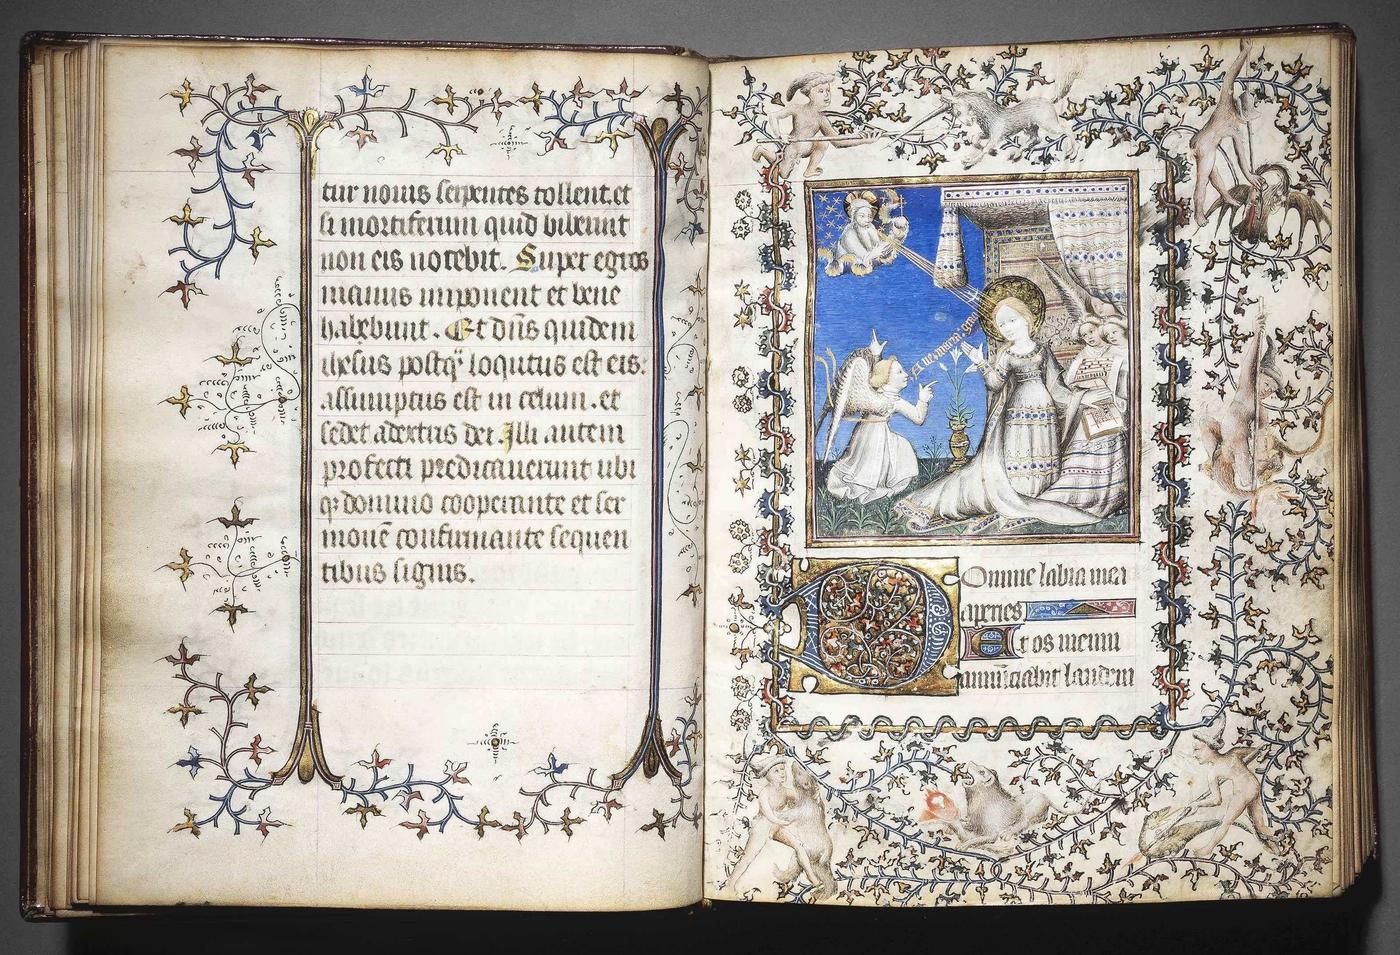 tur nouis serpentes tollent. et
si mortiferum quid biberint
non eis nocebit. Super egros
manus imponent et bene
habebunt. Et dñs quidem
ihesus postqͣ loqutus est eis:
assumptus est in celum. et
sedet adextris dei. Illi autem
profecti predicauerunt ubi
qꝫ domino cooperante et ser
monē confirmante sequen
tibus signis.
Aue maria. gra
Domine labia mea
aperies
Et os meum
annūciabit laudem